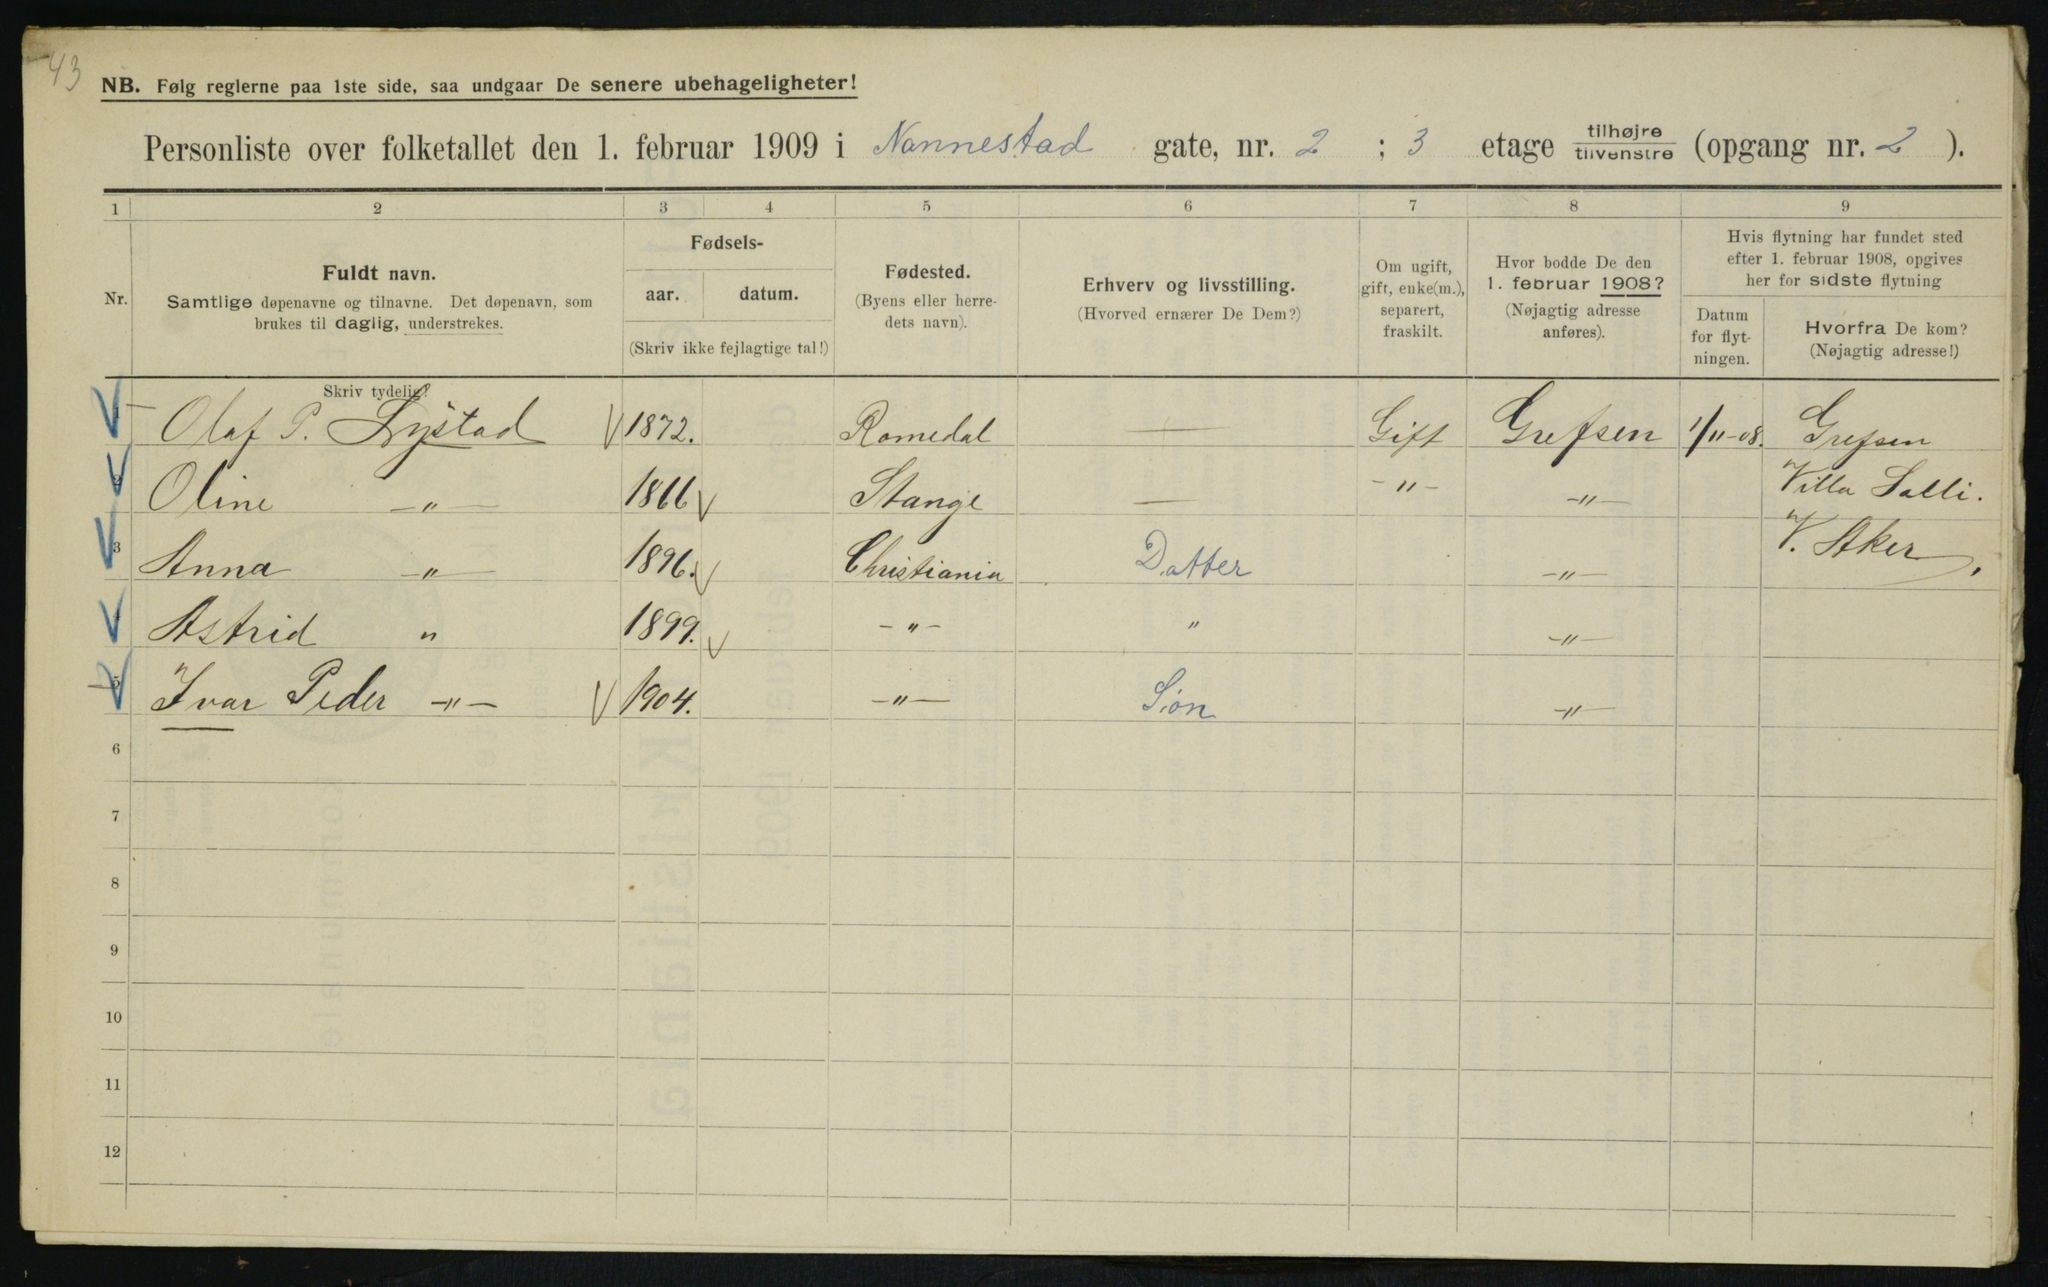 43
NB. Følg reglerne paa 1ste side, saa undgaar De senere ubehageligheter!
Personliste over folketallet den 1. februar 1909 i Nannestad gate, nr. 2 ; 3 etage tilhøjre tilvenstre (opgang nr. 2 ).
1 2 3 4 5 6 7 8 9
Nr.
Fuldt navn.
Samtlige døpenavne og tilnavne. Det døpenavn, som
brukes til daglig, understrekes.
Fødsels-
aar. datum.
(Skriv ikke fejlagtige tal!)
Fødested.
(Byens eller herre-
dets navn).
Erhverv og livsstilling.
(Hvorved ernærer De Dem?)
Om ugift,
gift, enke(m.),
separert,
fraskilt.
Hvor bodde De den
1. februar 1908?
(Nøjagtig adresse
anføres).
Hvis flytning har fundet sted
efter 1. februar 1908, opgives
her for sidste flytning
Datum
for flyt-
ningen.
Hvorfra De kom?
(Nøjagtig adresse!)
Skriv tydelig!
1 Olaf P. 1872. Romedal — Gift Grefsen 1/11-08. Grefsen
2 Oline —"— 1866 Stange — -"- —"— Villa Solli.
3 Anna —"— 1896. Christiania Datter —"— V. Aker,
4 Astrid " 1899. -"- " —"—
5 Ivar Peder -"- 1904. —"— Søn —"—
6
7
8
9
10
11
12